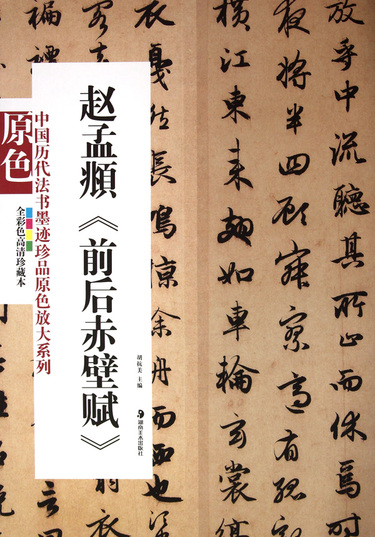 放乎中流聽其所止而休焉時
夜將半四顧寂寥適有孤
橫江東來翅如車輪玄裳縞
衣戛然長鳴掠余舟而西也
赵孟頫《前后赤壁赋》
胡紫桂 主编
湖南美术出版社
中国历代法书墨迹珍品原色放大系列
原色
全彩色高清珍藏本